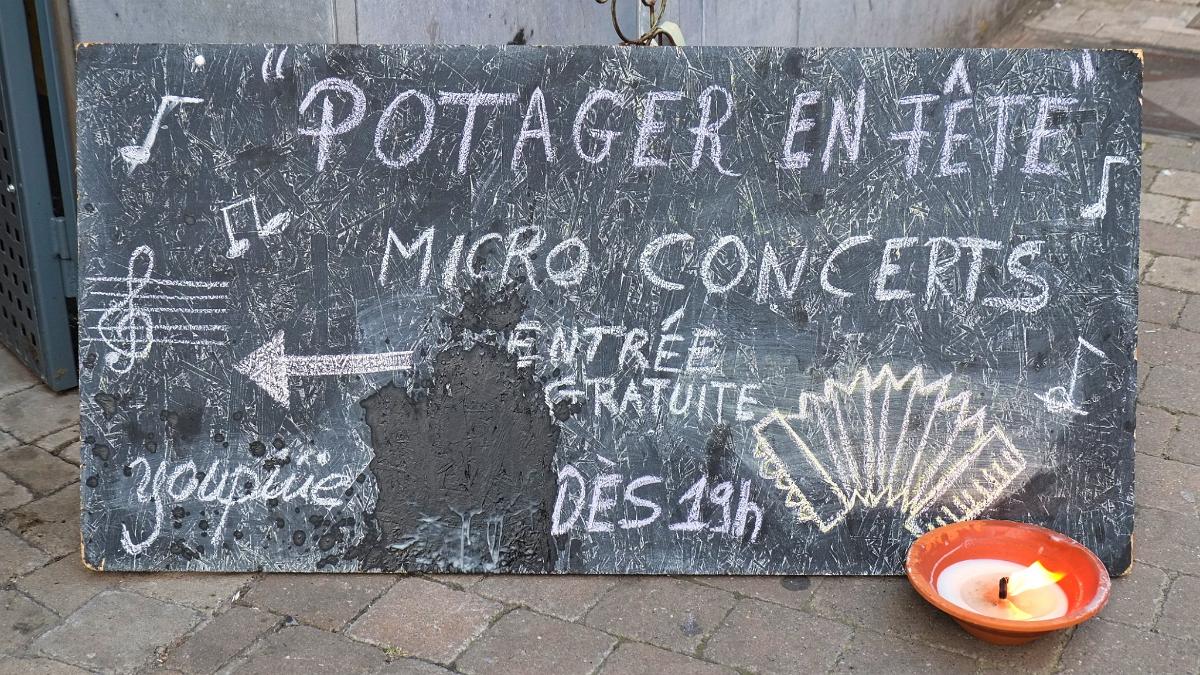 "POTAGER EN TÊTE"
MICRO CONCERTS
ENTRÉE
GRATUITE
youpiiie
DÈS 19h